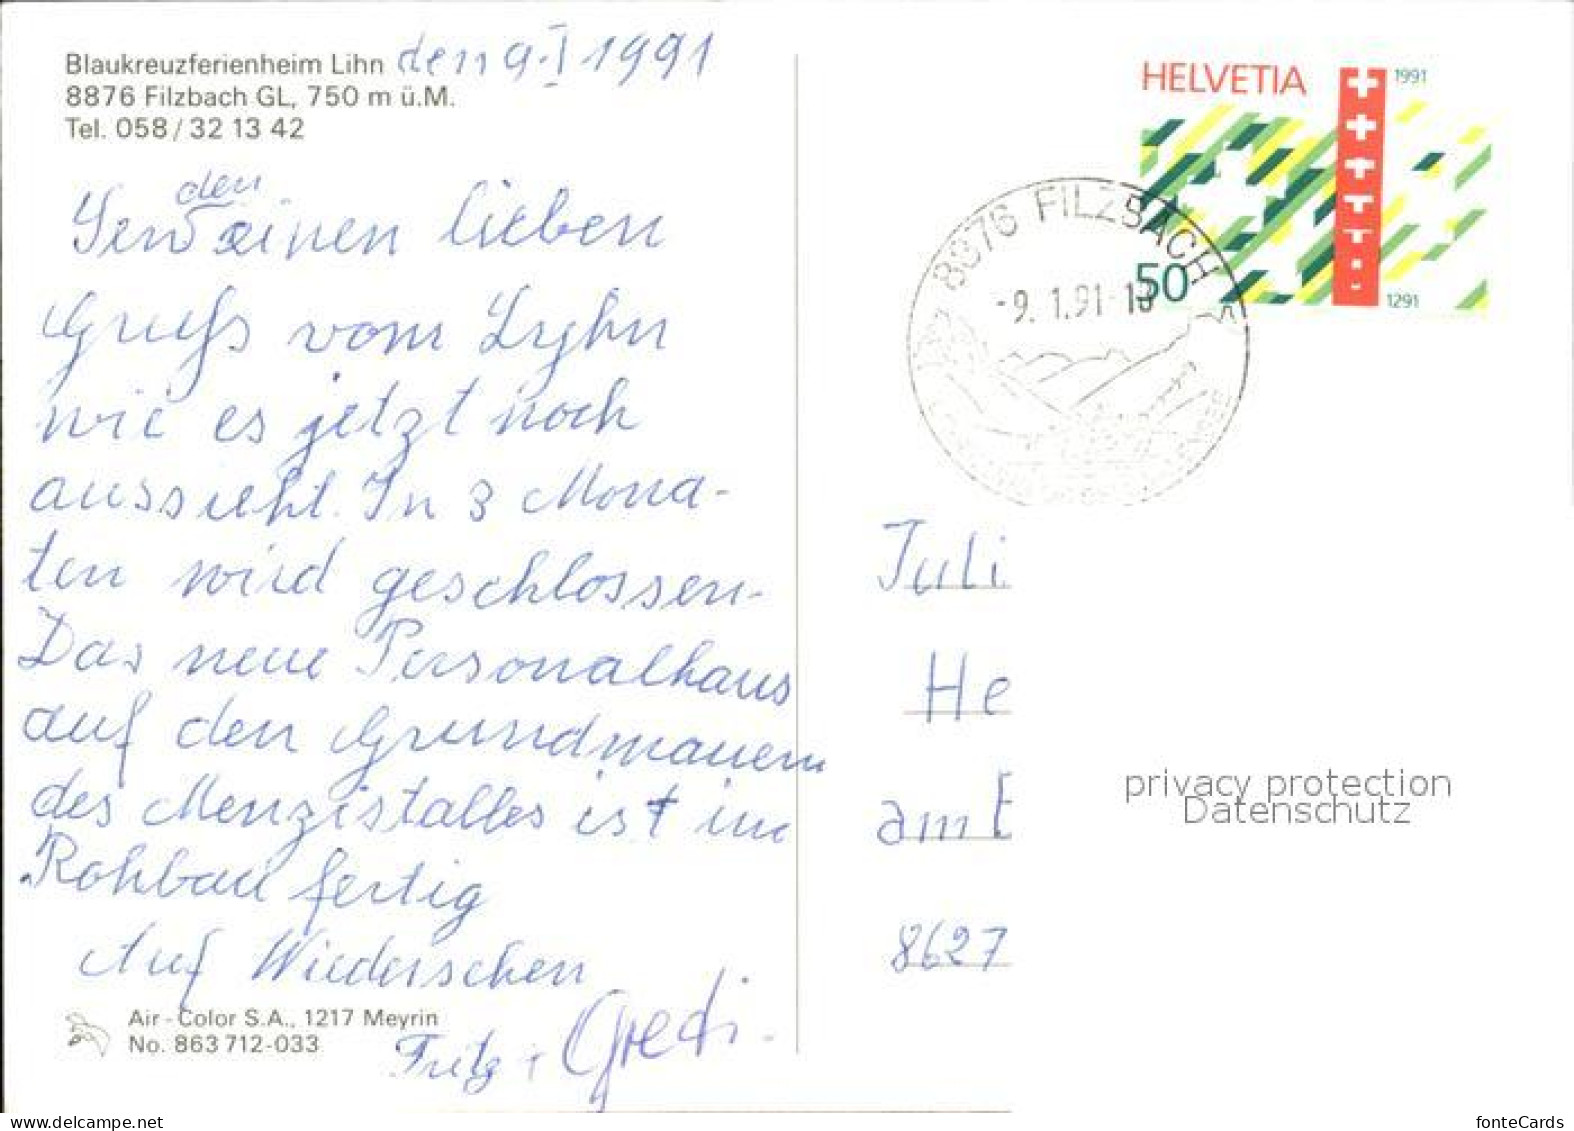 Blaukreuzferienheim Lihn den 9.I 1991
8876 Filzbach GL, 750 m ü.M.
Tel. 058 / 32 13 42
den
einen lieben
Gruss vom Lyhn
wie es jetzt noch
aussieht. In 3 Mona-
ten wird geschlossen.
Das neue Personalhaus
auf den Grundmauern
des Menzistalles ist im
Rohbau fertig
Auf Wiedersehen
Fritz + Gredi.
Air-Color S.A., 1217 Meyrin
No. 863 712-033
HELVETIA
1991
50
1291
8876 FILZBACH
-9. 1.91-
Juli
He
am E
8627
privacy protection
Datenschutz
www.delcampe.net
fonteCards